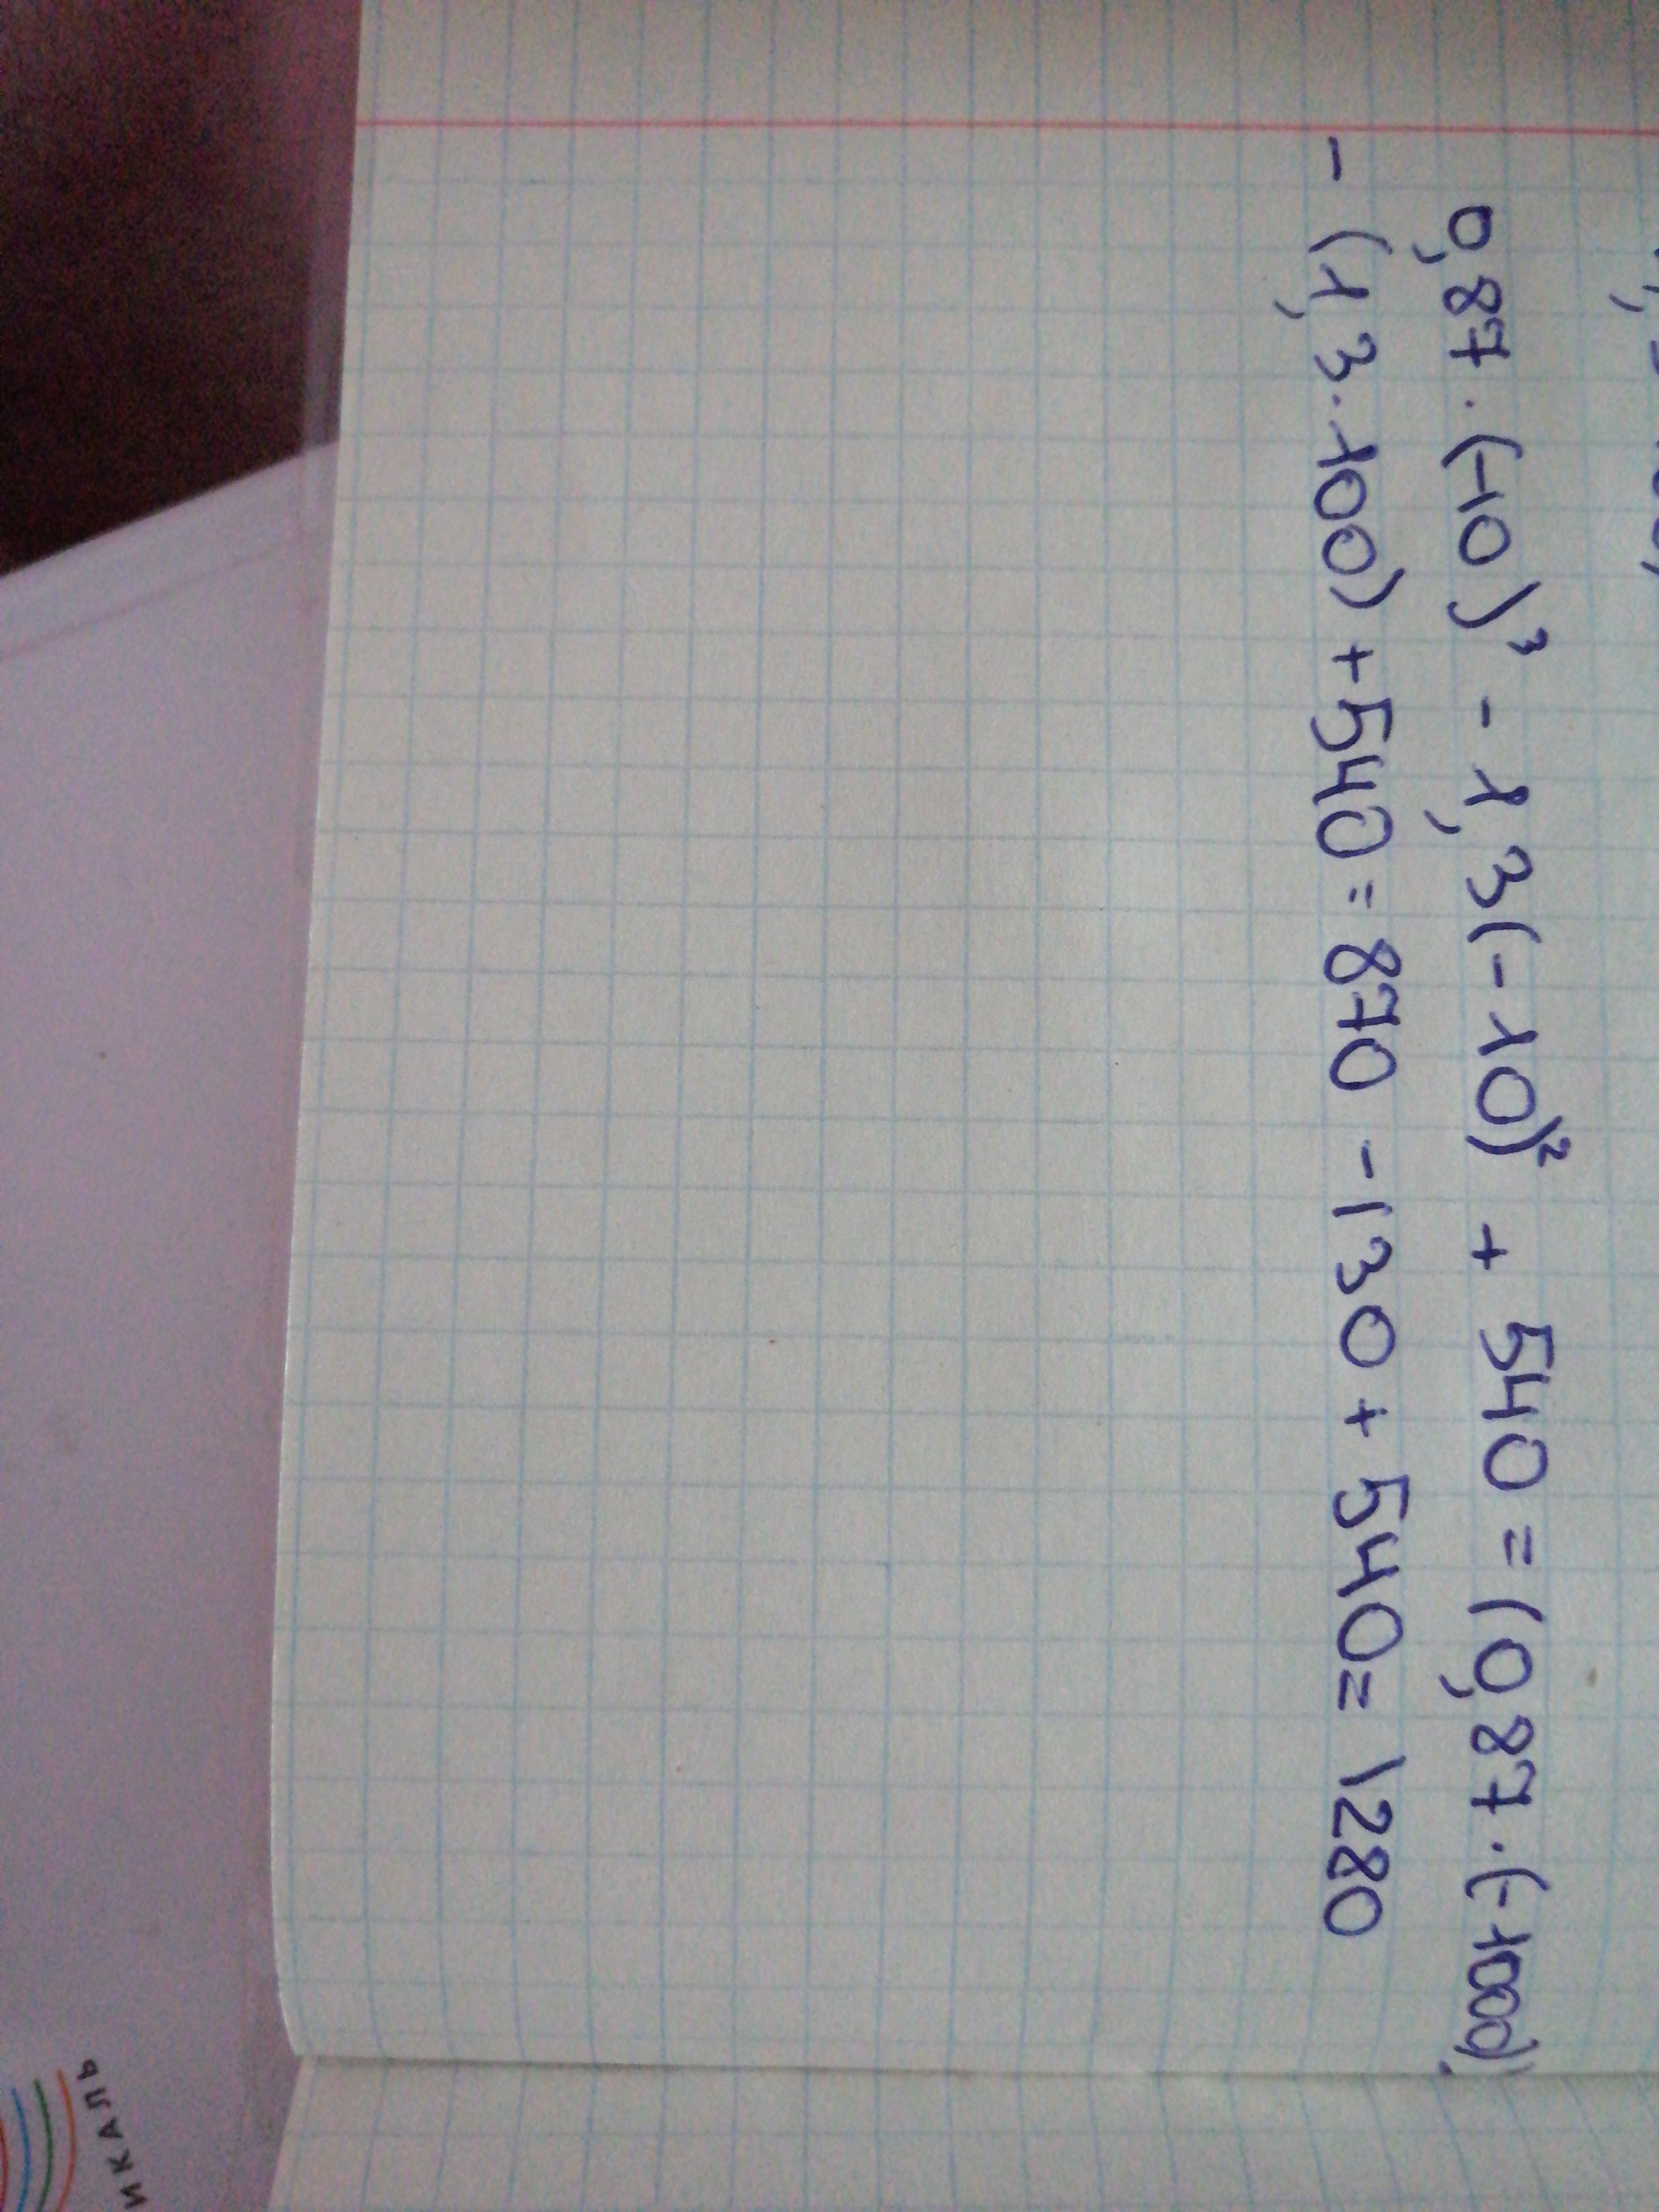 0,87 · (-10)³ - 1,3(-10)² + 540 = (0,87 · (-1000)
- (1,3 · 100) + 540 = 870 - 130 + 540 = 1280
ИКАЛЬ